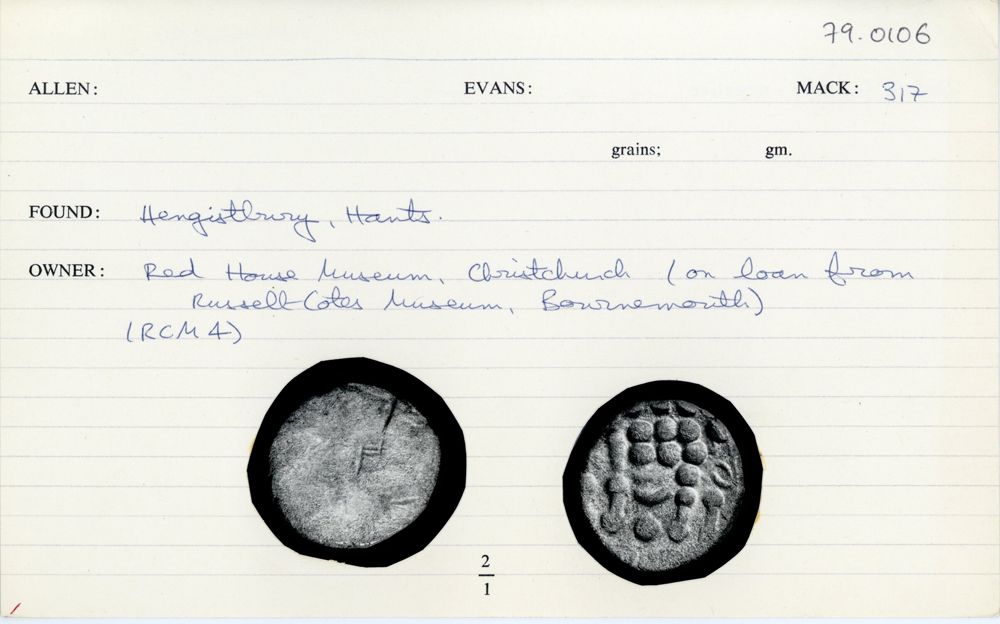 79.0106
ALLEN: EVANS: MACK: 317
grains; gm.
FOUND: Hengistbury, Hants.
OWNER: Red House Museum, Christchurch (on loan from
Russell-Cotes Museum, Bournemouth)
(RCM 4)
2
1